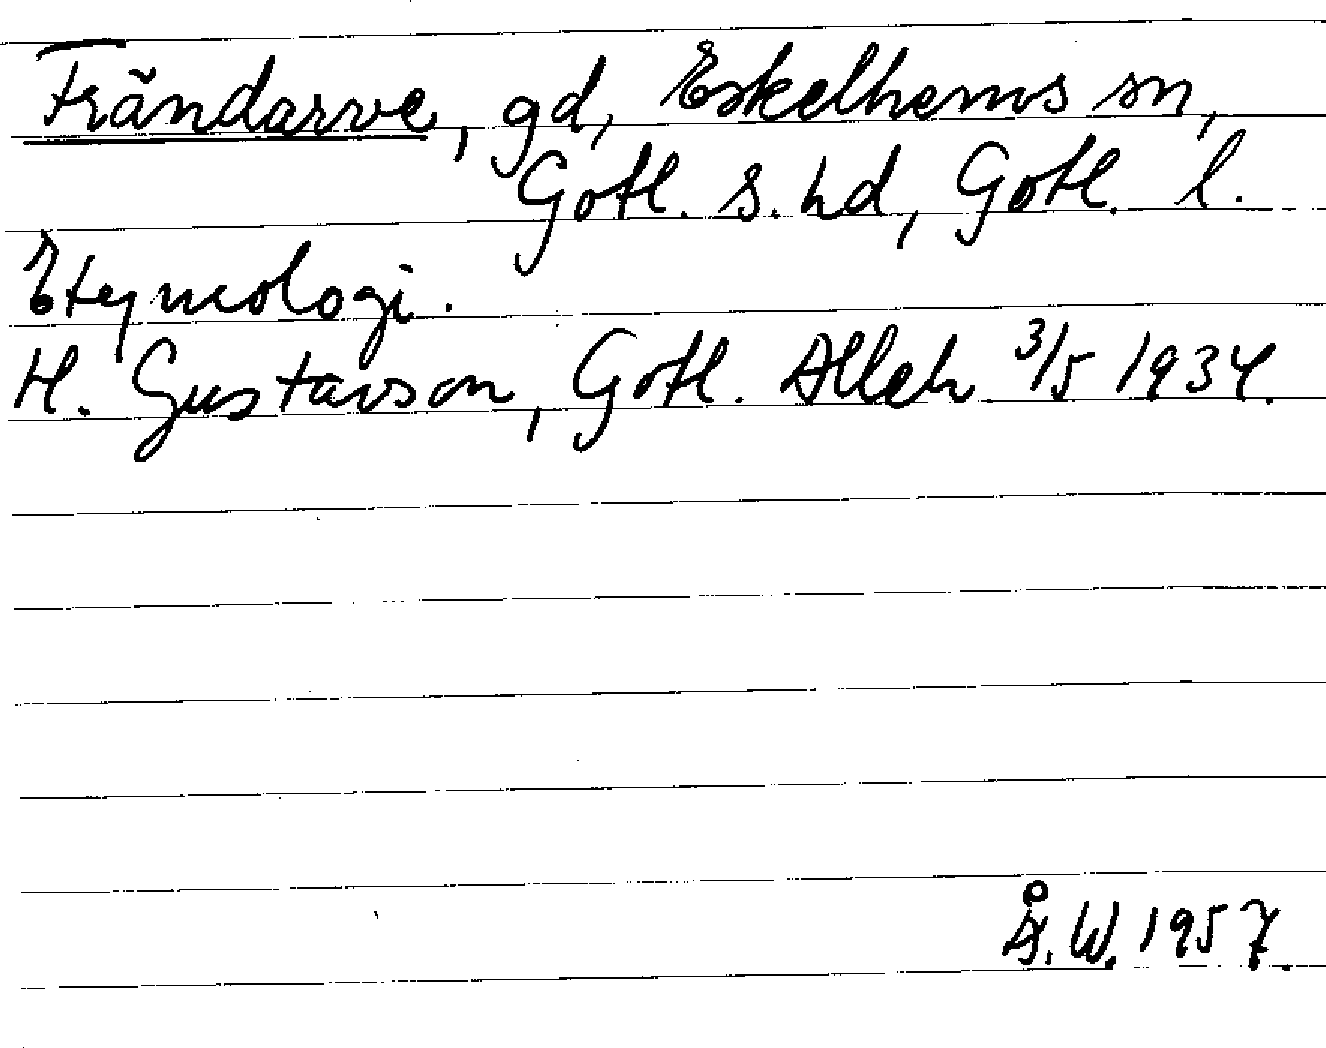 Frändarve, gd, Eskelhems sn,
Gotl. s. hd, Gotl. l.
Etymologi.
H. Gustavson, Gotl. Alleh. 3/5 1934.
Å. W. 1957.